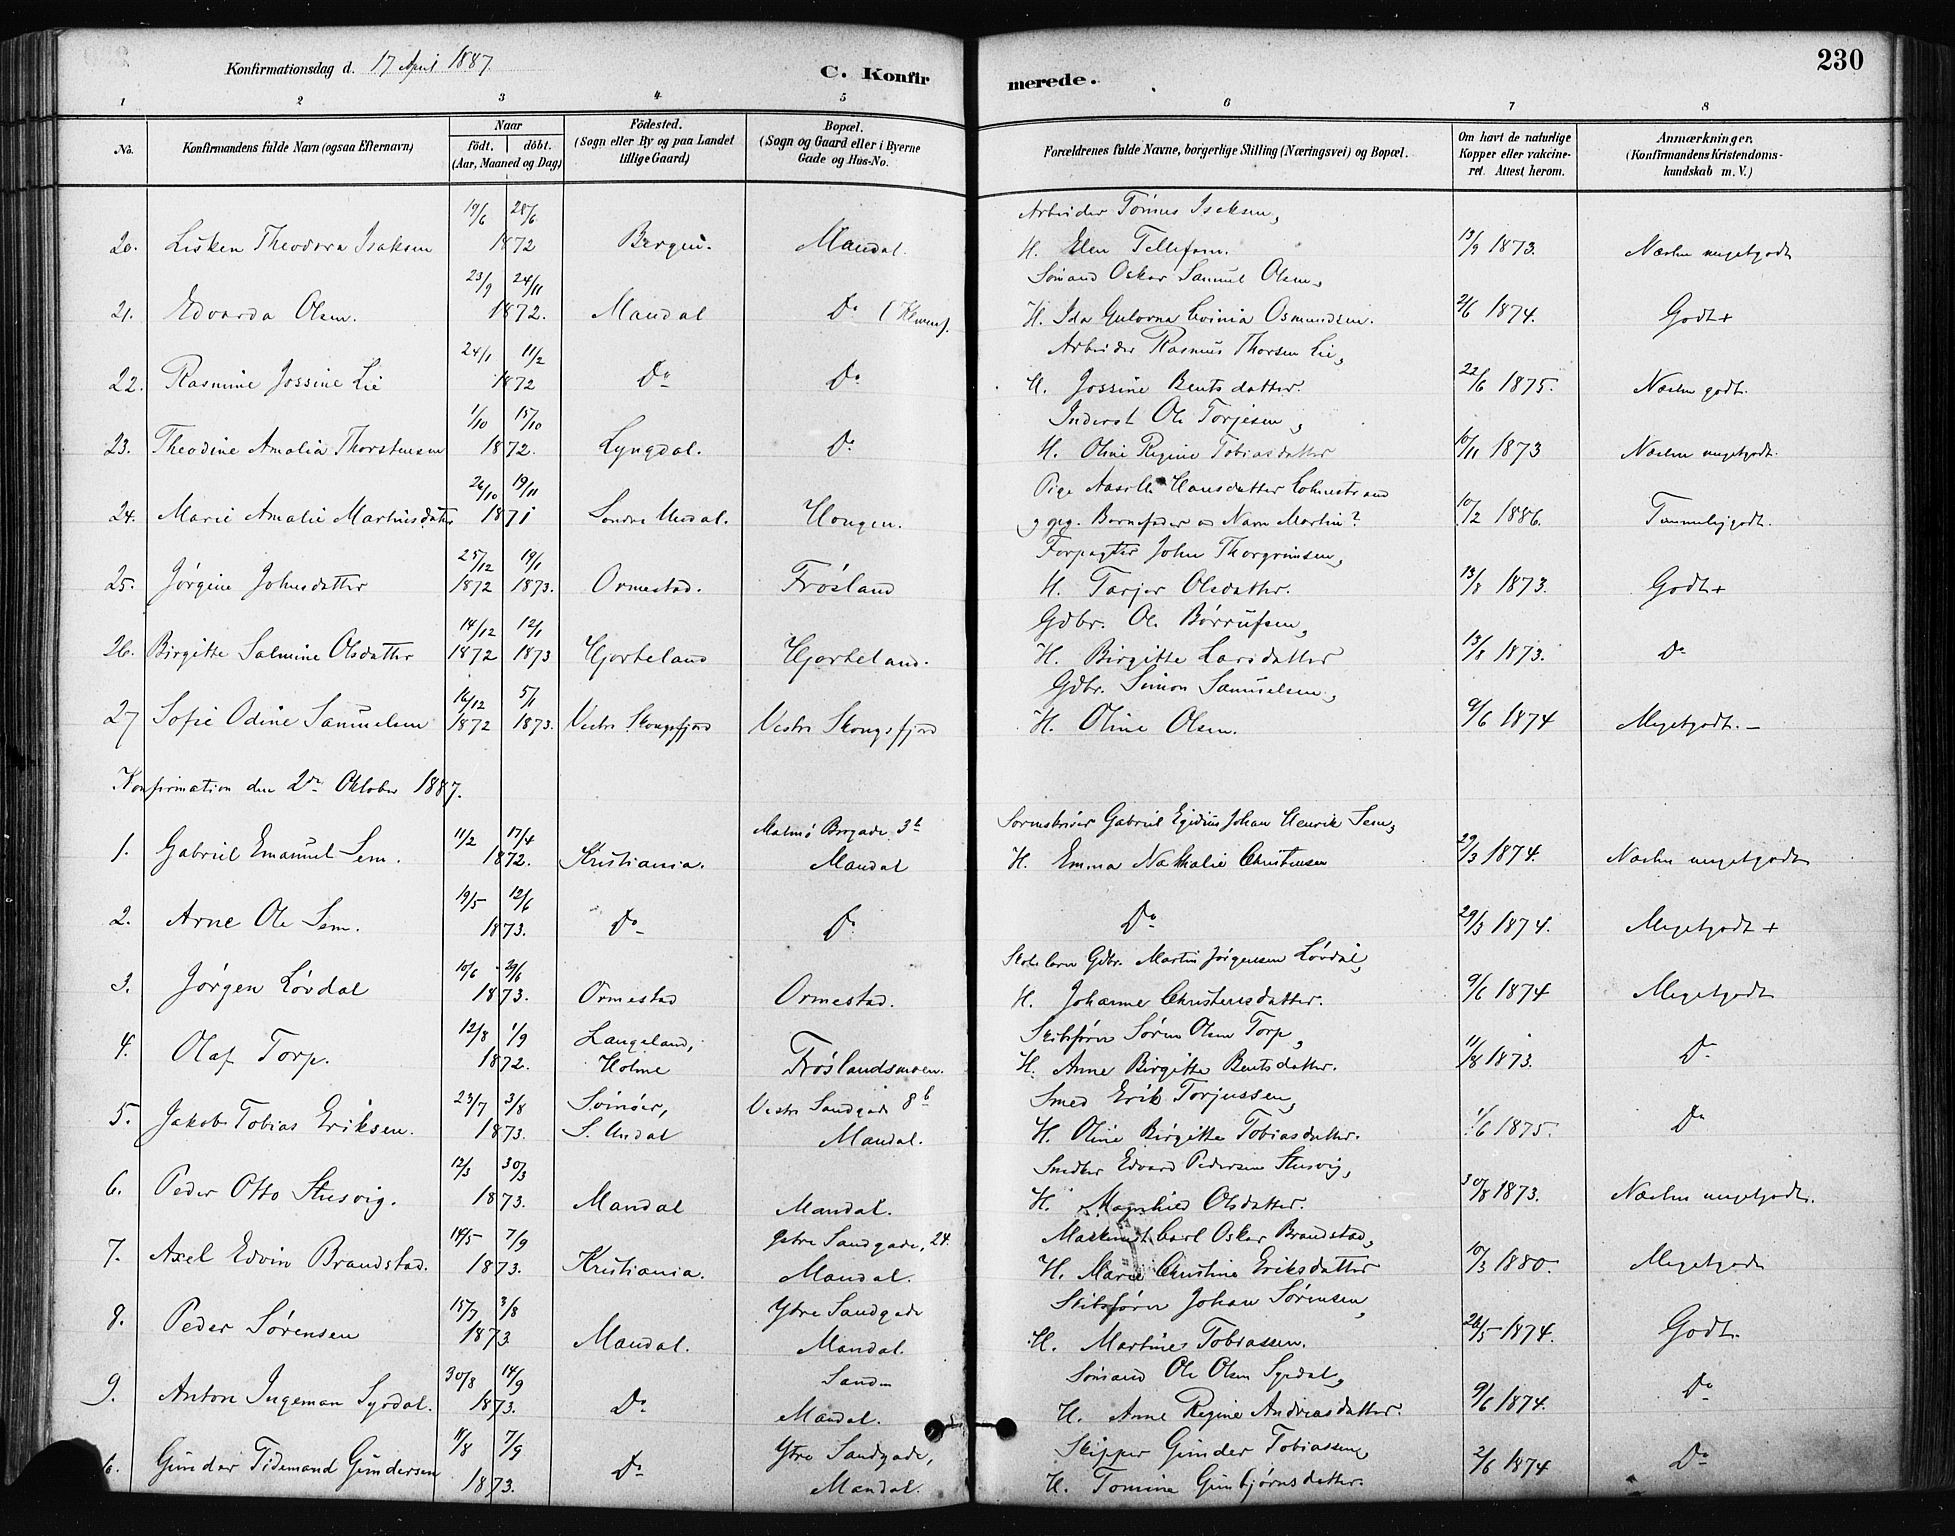 Konfirmationsdag d. 17 April 1887.
C. Konfirmerede.
230
1 2 3 4 5 6 7 8
No.
Konfirmandens fulde Navn (ogsaa Efternavn)
Naar födt. döbt. (Aar, Maaned og Dag)
Födested. (Sogn eller By og paa Landet tillige Gaard)
Bopæl. (Sogn og Gaard eller i Byerne Gade og Hus-No.
Forældrenes fulde Navne, borgerlige Stilling (Næringsvei) og Bopæl.
Om havt de naturlige Kopper eller vakcineret. Attest herom.
Anmærkninger. (Konfirmandens Kristendomskundskab m. V.)
20. Lisken Theodora Isaksen 19/6 28/6 1872 Bergen. Mandal. Arbeider Tönnes Isaksen, H. Elen Tellefsen. 13/9 1873. Næsten megetgodt
21. Edvarda Olsen. 23/9 24/11 1872. Mandal Do Sömand Oskar Samuel Olsen, H. Ida Gulovna Osmundsen. 2/6 1874. Godt+
22. Rasmine Jossine Lie 24/1 11/2 1872 Do Do Arbeider Rasmus Thorsen Lie, H. Jossine Bentsdatter. 22/6 1875. Næsten godt.
23. Theodine Amalia Thorstensen 1/10 15/10 1872. Lyngdal. Do Inderst Ole Torjesen, H. Oline Regine Tobiasdatter 10/11 1873 Næsten megetgodt.
24. Marie Amalie Martinsdatter 26/10 19/11 1871 Söndre Undal. Hougen. Pige Aasille Hansdatter og opg. Barnefader Navn Martin? 10/2 1886. Temmeliggodt.
25. Jørgine Johnsdatter 25/12 1872 19/1 1873. Ormestad. Frøsland Forpagter John Thorgrimsen, H. Tarjer Olsdatter. 13/8 1873. Godt+
26. Birgitte Salmine Olsdatter 14/12 1872 12/1 1873 Hjorteland Hjorteland. Gdbr. Ole Børrufsen, H. Birgitte Larsdatter 13/8 1873. Do
27 Sofie Odine Samuelsen 16/12 1872 5/1 1873. Vestre Skongsfjord Vestre Skongsfjord Gdbr. Simon Samuelsen, H. Oline Olsen. 9/6 1874 Megetgodt. –
Konfirmation den 2den Oktober 1887.
1. Gabriel Emanuel Sem. 11/2 17/4 1872. Kristiania. Malmö 3b Mandal Gabriel Egidius Johan Henrik Sem, H. Emma Nathalie Christensen 29/3 1874. Næsten megetgodt
2. Arne Ole Sem. 19/5 12/6 1873. Do Do Do 29/3 1874. Megetgodt +
3. Jørgen Løvdal 10/6 29/6 1873. Ormestad Ormestad. Gdbr. Martin Jørgensen Løvdal, H. Johanne Christensdatter. 9/6 1874 Megetgodt
4. Olaf Torp. 12/8 1/9 1872. Langeland, Holme Frøslandsmoen. Skibsfører Sören Olsen Torp, H. Anne Birgitte Bentsdatter. 11/8 1873. Do
5. Jakob Tobias Eriksen. 23/7 3/8 1873. Svinöer, S. Undal Vestre Sandgade 8b Mandal. Smed Erik Torjussen, H. Oline Birgitte Tobiasdatter. 1/6 1875. Do
6. Peder Otto Stusvig. 12/3 30/3 1873. Mandal Mandal. Snedker Edvard Pedersen Stusvig, H. Magnhild Olsdatter. 30/8 1873. Næsten megetgodt.
7. Axel Edvin Brandstad. 14/5 7/9 1873. Kristiania. Ystre Sandgade, 24. Mandal. Maskinist Carl Oskar Brandstad, H. Marie Christine Eriksdatter 10/3 1880. Megetgodt
8. Peder Sørensen 15/7 3/8 1873 Mandal. Ytre Sandgade Mandal. Skibsfører Johan Sørensen, H. Martine Tobiassen. 26/5 1874. Godt.
9. Anton Ingeman Syrdal. 30/8 14/9 1873. Do Sand Mandal. Sömand Ole Olsen Syrdal, H. Anne Regine Andreasdatter. 9/6 1874. Do
Gunder Tidemand Gundersen 11/8 7/9 1873. Do Ytre Sandgade, Mandal. Skipper Gunder Tobiassen, H. Tomine Gunbjørnsdatter. 2/6 1874 Do